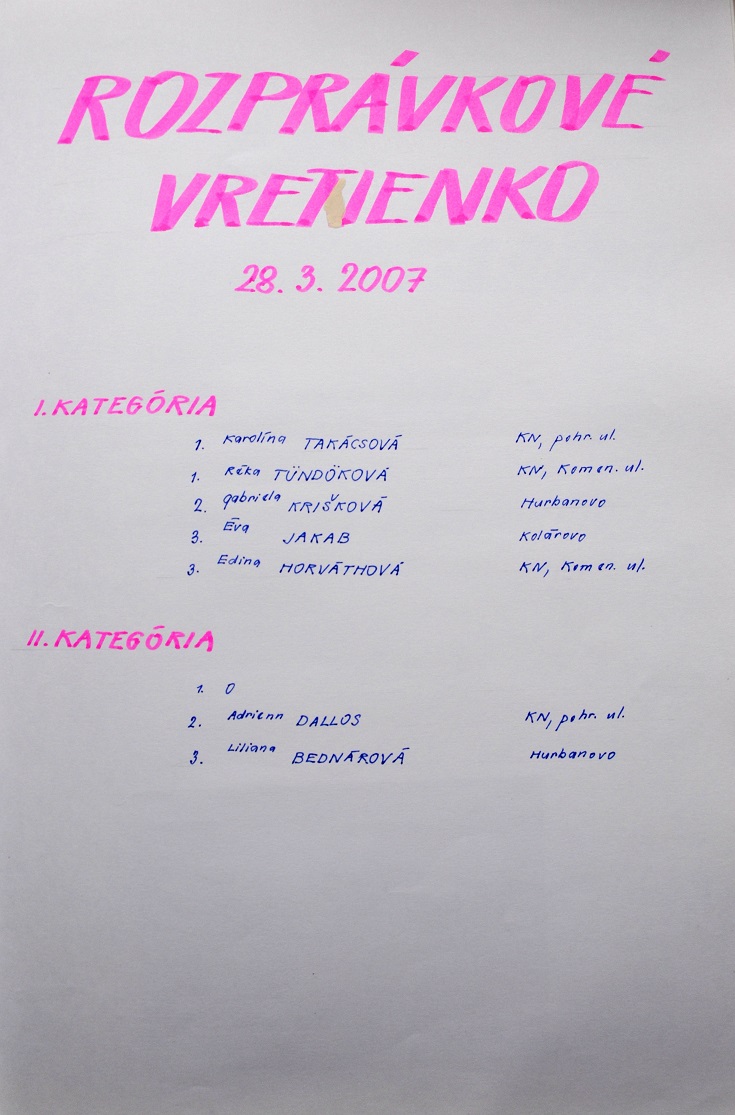 ROZPRÁVKOVÉ
VRETIENKO
28. 3. 2007
I. KATEGÓRIA
1. Karolína TAKÁCSOVÁ KN, pohr. ul.
1. Réka TÜNDÖKOVÁ KN, Komen. ul.
2. gabriela KRIŠKOVÁ Hurbanovo
3. Éva JAKAB Kolárovo
3. Edina HORVÁTHOVÁ KN, Komen. ul.
II. KATEGÓRIA
1. 0
2. Adrienn DALLOS KN, pohr. ul.
3. Liliana BEDNÁROVÁ Hurbanovo